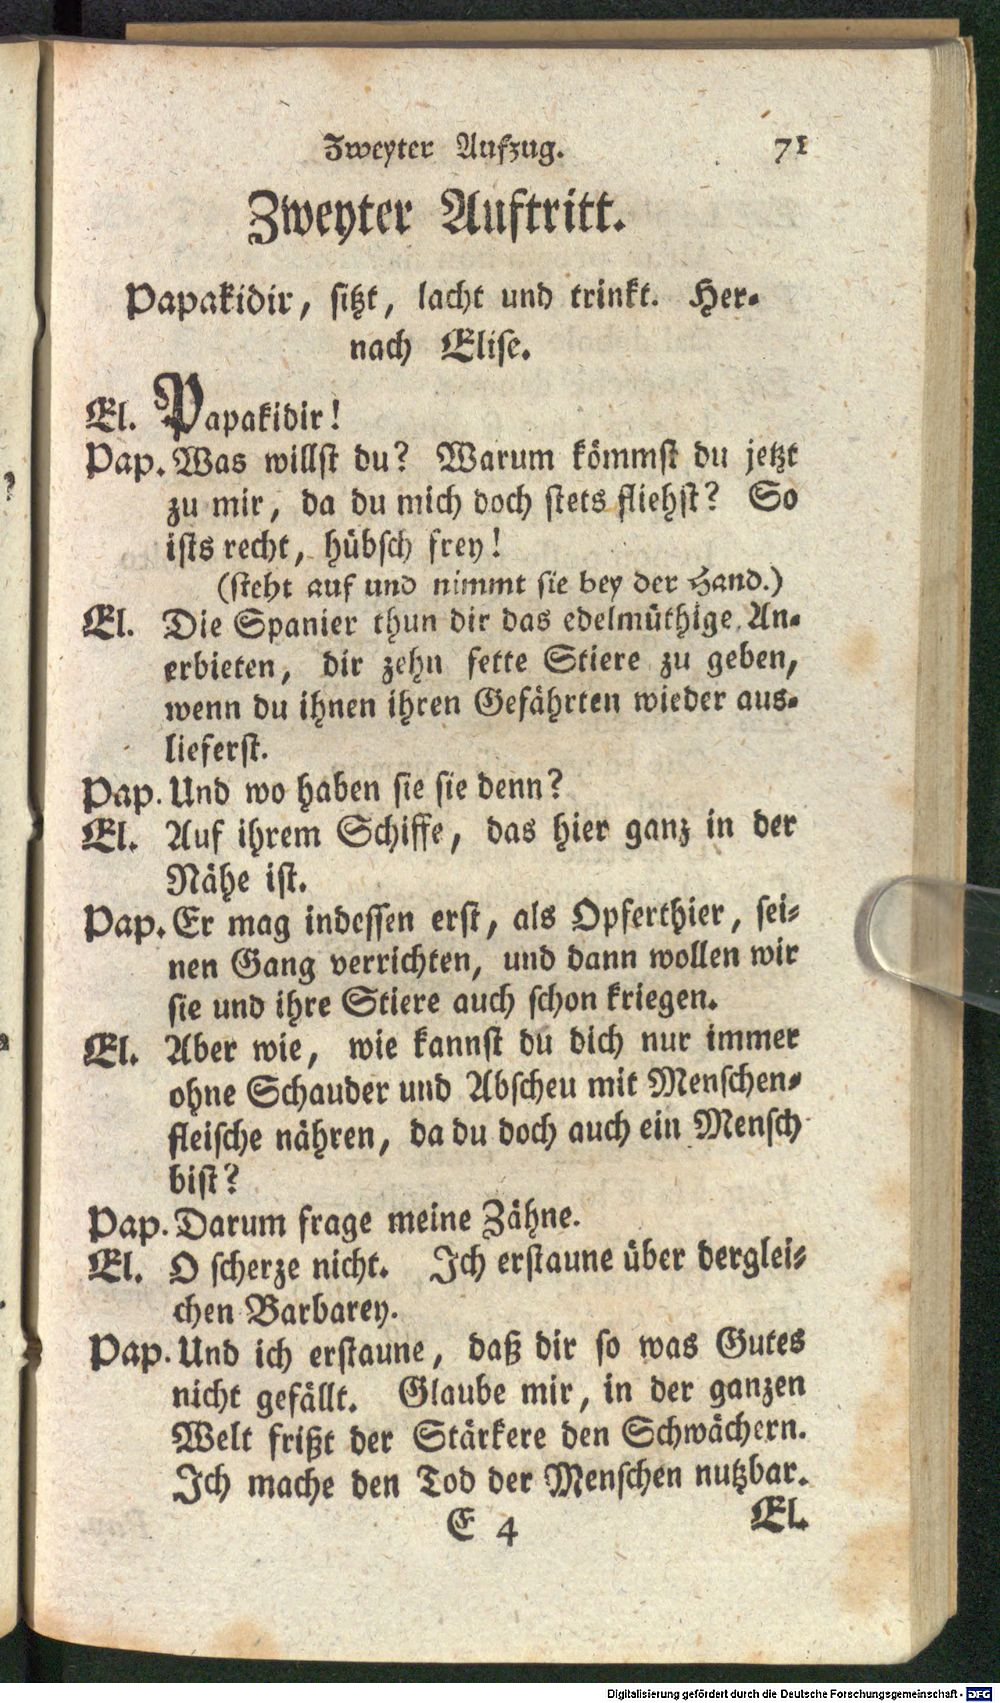 Zweyter Aufzug. 71
Zweyter Auftritt.
Papakidir, sitzt, lacht und trinkt. Her-
nach Elise.
El. Papakidir!
Pap. Was willst du? Warum kömmst du jetzt
zu mir, da du mich doch stets fliehst? So
ists recht, hübsch frey!
(steht auf und nimmt sie bey der Hand.)
El. Die Spanier thun dir das edelmüthige An-
erbieten, dir zehn fette Stiere zu geben,
wenn du ihnen ihren Gefährten wieder aus-
lieferst.
Pap. Und wo haben sie sie denn?
El. Auf ihrem Schiffe, das hier ganz in der
Nähe ist.
Pap. Er mag indessen erst, als Opferthier, sei-
nen Gang verrichten, und dann wollen wir
sie und ihre Stiere auch schon kriegen.
El. Aber wie, wie kannst du dich nur immer
ohne Schauder und Abscheu mit Menschen-
fleische nähren, da du doch auch ein Mensch
bist?
Pap. Darum frage meine Zähne.
El. O scherze nicht. Ich erstaune über derglei-
chen Barbarey.
Pap. Und ich erstaune, daß dir so was Gutes
nicht gefällt. Glaube mir, in der ganzen
Welt frißt der Stärkere den Schwächern.
Ich mache den Tod der Menschen nutzbar.
E 4 El.
Digitalisierung gefördert durch die Deutsche Forschungsgemeinschaft - DFG